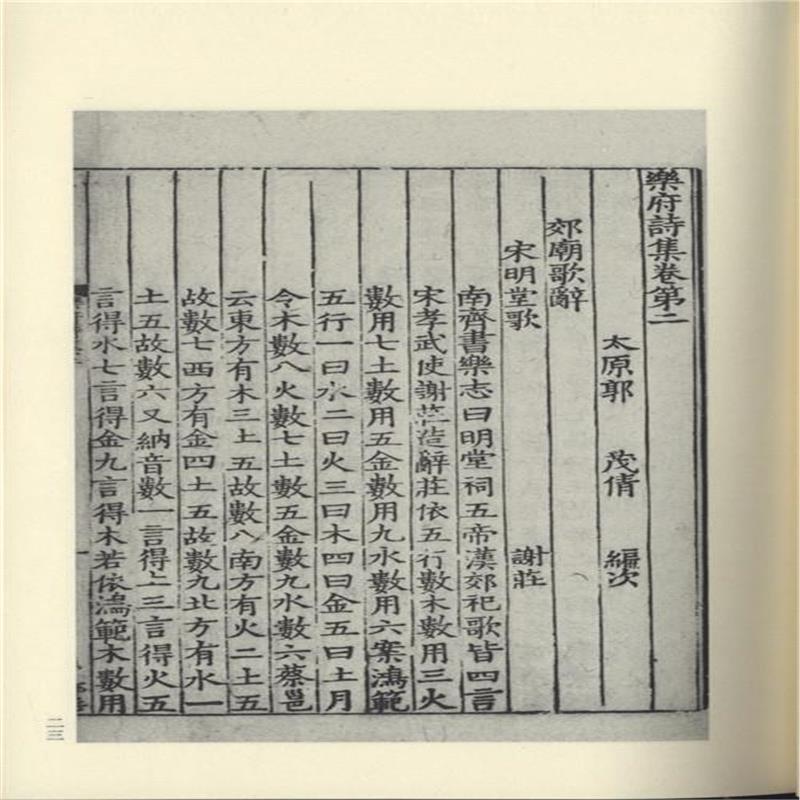 樂府詩集卷第二
太原郭 茂倩 編次
郊廟歌辭
宋明堂歌 謝莊
南齊書樂志曰明堂祠五帝漢郊祀歌皆四言
宋孝武使謝莊造辭莊依五行數木數用三火
數用七土數用五金數用九水數用六案鴻範
五行一曰水二曰火三曰木四曰金五曰土月
令木數八火數七土數五金數九水數六蔡邕
云東方有木三土五故數八南方有火二土五
故數七西方有金四土五故數九北方有水一
土五故數六又納音數一言得土三言得火五
言得水七言得金九言得木若依鴻範木數用
二三